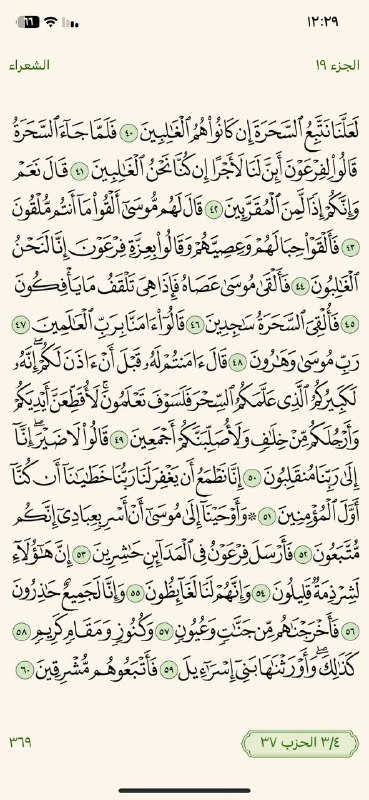 ١٢:٢٩
١٦
الجزء ١٩
الشعراء
لَعَلَّنَا نَتَّبِعُ ٱلسَّحَرَةَ إِن كَانُوا۟ هُمُ ٱلْغَـٰلِبِينَ ٤٠ فَلَمَّا جَآءَ ٱلسَّحَرَةُ
قَالُوا۟ لِفِرْعَوْنَ أَئِنَّ لَنَا لَأَجْرًا إِن كُنَّا نَحْنُ ٱلْغَـٰلِبِينَ ٤١ قَالَ نَعَمْ
وَإِنَّكُمْ إِذًا لَّمِنَ ٱلْمُقَرَّبِينَ ٤٢ قَالَ لَهُم مُّوسَىٰٓ أَلْقُوا۟ مَآ أَنتُم مُّلْقُونَ
٤٣ فَأَلْقَوْا۟ حِبَالَهُمْ وَعِصِيَّهُمْ وَقَالُوا۟ بِعِزَّةِ فِرْعَوْنَ إِنَّا لَنَحْنُ
ٱلْغَـٰلِبُونَ ٤٤ فَأَلْقَىٰ مُوسَىٰ عَصَاهُ فَإِذَا هِىَ تَلْقَفُ مَا يَأْفِكُونَ
٤٥ فَأُلْقِىَ ٱلسَّحَرَةُ سَـٰجِدِينَ ٤٦ قَالُوٓا۟ ءَامَنَّا بِرَبِّ ٱلْعَـٰلَمِينَ ٤٧
رَبِّ مُوسَىٰ وَهَـٰرُونَ ٤٨ قَالَ ءَامَنتُمْ لَهُۥ قَبْلَ أَنْ ءَاذَنَ لَكُمْ ۖ إِنَّهُۥ
لَكَبِيرُكُمُ ٱلَّذِى عَلَّمَكُمُ ٱلسِّحْرَ فَلَسَوْفَ تَعْلَمُونَ ۚ لَأُقَطِّعَنَّ أَيْدِيَكُمْ
وَأَرْجُلَكُم مِّنْ خِلَـٰفٍ وَلَأُصَلِّبَنَّكُمْ أَجْمَعِينَ ٤٩ قَالُوا۟ لَا ضَيْرَ ۖ إِنَّآ
إِلَىٰ رَبِّنَا مُنقَلِبُونَ ٥٠ إِنَّا نَطْمَعُ أَن يَغْفِرَ لَنَا رَبُّنَا خَطَـٰيَـٰنَآ أَن كُنَّآ
أَوَّلَ ٱلْمُؤْمِنِينَ ٥١ ۞ وَأَوْحَيْنَآ إِلَىٰ مُوسَىٰٓ أَنْ أَسْرِ بِعِبَادِىٓ إِنَّكُم
مُّتَّبَعُونَ ٥٢ فَأَرْسَلَ فِرْعَوْنُ فِى ٱلْمَدَآئِنِ حَـٰشِرِينَ ٥٣ إِنَّ هَـٰٓؤُلَآءِ
لَشِرْذِمَةٌ قَلِيلُونَ ٥٤ وَإِنَّهُمْ لَنَا لَغَآئِظُونَ ٥٥ وَإِنَّا لَجَمِيعٌ حَـٰذِرُونَ
٥٦ فَأَخْرَجْنَـٰهُم مِّن جَنَّـٰتٍ وَعُيُونٍ ٥٧ وَكُنُوزٍ وَمَقَامٍ كَرِيمٍ ٥٨
كَذَٰلِكَ ۖ وَأَوْرَثْنَـٰهَا بَنِىٓ إِسْرَٰٓءِيلَ ٥٩ فَأَتْبَعُوهُم مُّشْرِقِينَ ٦٠
٣/٤ الحزب ٣٧
٣٦٩